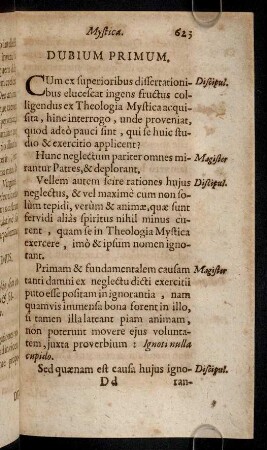 Mystica. 623
DUBIUM PRIMUM.
CUm ex superioribus dissertationi- Discipul.
bus elucescat ingens fructus col-
ligendus ex Theologia Mystica acqui-
sita, hinc interrogo, unde proveniat,
quod adeò pauci sint, qui se huic stu-
dio & exercitio applicent?
Hunc neglectum pariter omnes mi- Magister
rantur Patres, & deplorant.
Vellem autem scire rationes hujus Discipul.
neglectus, & vel maximè cum non so-
lùm tepidi, verùm & animæ, quæ sunt
fervidi aliàs spiritus nihil minus cu-
rent, quam se in Theologia Mystica
exercere, imò & ipsum nomen igno-
rant.
Primam & fundamentalem causam Magister
tanti damni ex neglectu dicti exercitii
puto esse positam in ignorantia, nam
quamvis immensa bona forent in illo,
si tamen illa lateant piam animam,
non poterunt movere ejus volunta-
tem, juxta proverbium: Ignoti nulla
cupido.
Sed quænam est causa hujus igno- Discipul.
Dd ran-